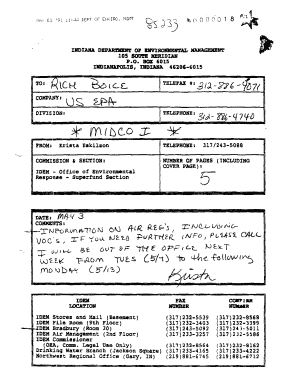 MAY 03 '91 13:41 DEPT OF ENVIRO. MGMT
85233
INDIANA DEPARTMENT OF ENVIRONMENTAL MANAGEMENT
105 SOUTH MERIDIAN
P.O. BOX 6015
INDIANAPOLIS, INDIANA 46206-6015
TO: RICH BOICE TELEFAX #: 312-886-4071
COMPANY: US EPA
DIVISION: TELEPHONE: 312-886-4740
* MIDCO I *
FROM: Krista Eskilson TELEPHONE: 317/243-5088
COMMISSION & SECTION: NUMBER OF PAGES (INCLUDING
COVER PAGE):
IDEM - Office of Environmental
Response - Superfund Section
5
DATE: MAY 3
COMMENTS:
INFORMATION ON AIR REG'S, INCLUDING
VOC'S, IF YOU NEED FURTHER INFO, PLEASE CALL
I WILL BE OUT OF THE OFFICE NEXT
WEEK FROM TUES (5/7) to the following
MONDAY (5/13)
Krista
IDEM LOCATION FAX NUMBER CONFIRM NUMBER
IDEM Stores and Mail (Basement) (317)232-5539 (317)232-8568
IDEM File Room (9th Floor) (317)232-3403 (317)232-3399
IDEM Bradbury (Room JO) (317)243-5092 (317)243-5011
IDEM Air Management (2nd Floor) (317)233-3257 (317)232-5586
IDEM Commissioner
(OEA, Comm. Legal Use Only) (317)232-8564 (317)232-8162
Drinking Water Branch (Jackson Square) (317)233-4165 (317)233-4222
Northwest Regional Office (Gary, IN) (219)881-6745 (219)881-6712